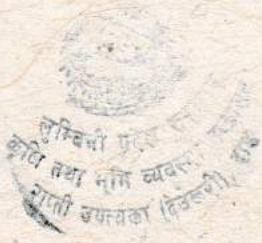 लुम्बिनी प्रदेश
कृषि तथा भूमि व्यवस्था
राप्ती उपत्यका (देउखुरी), दाङ